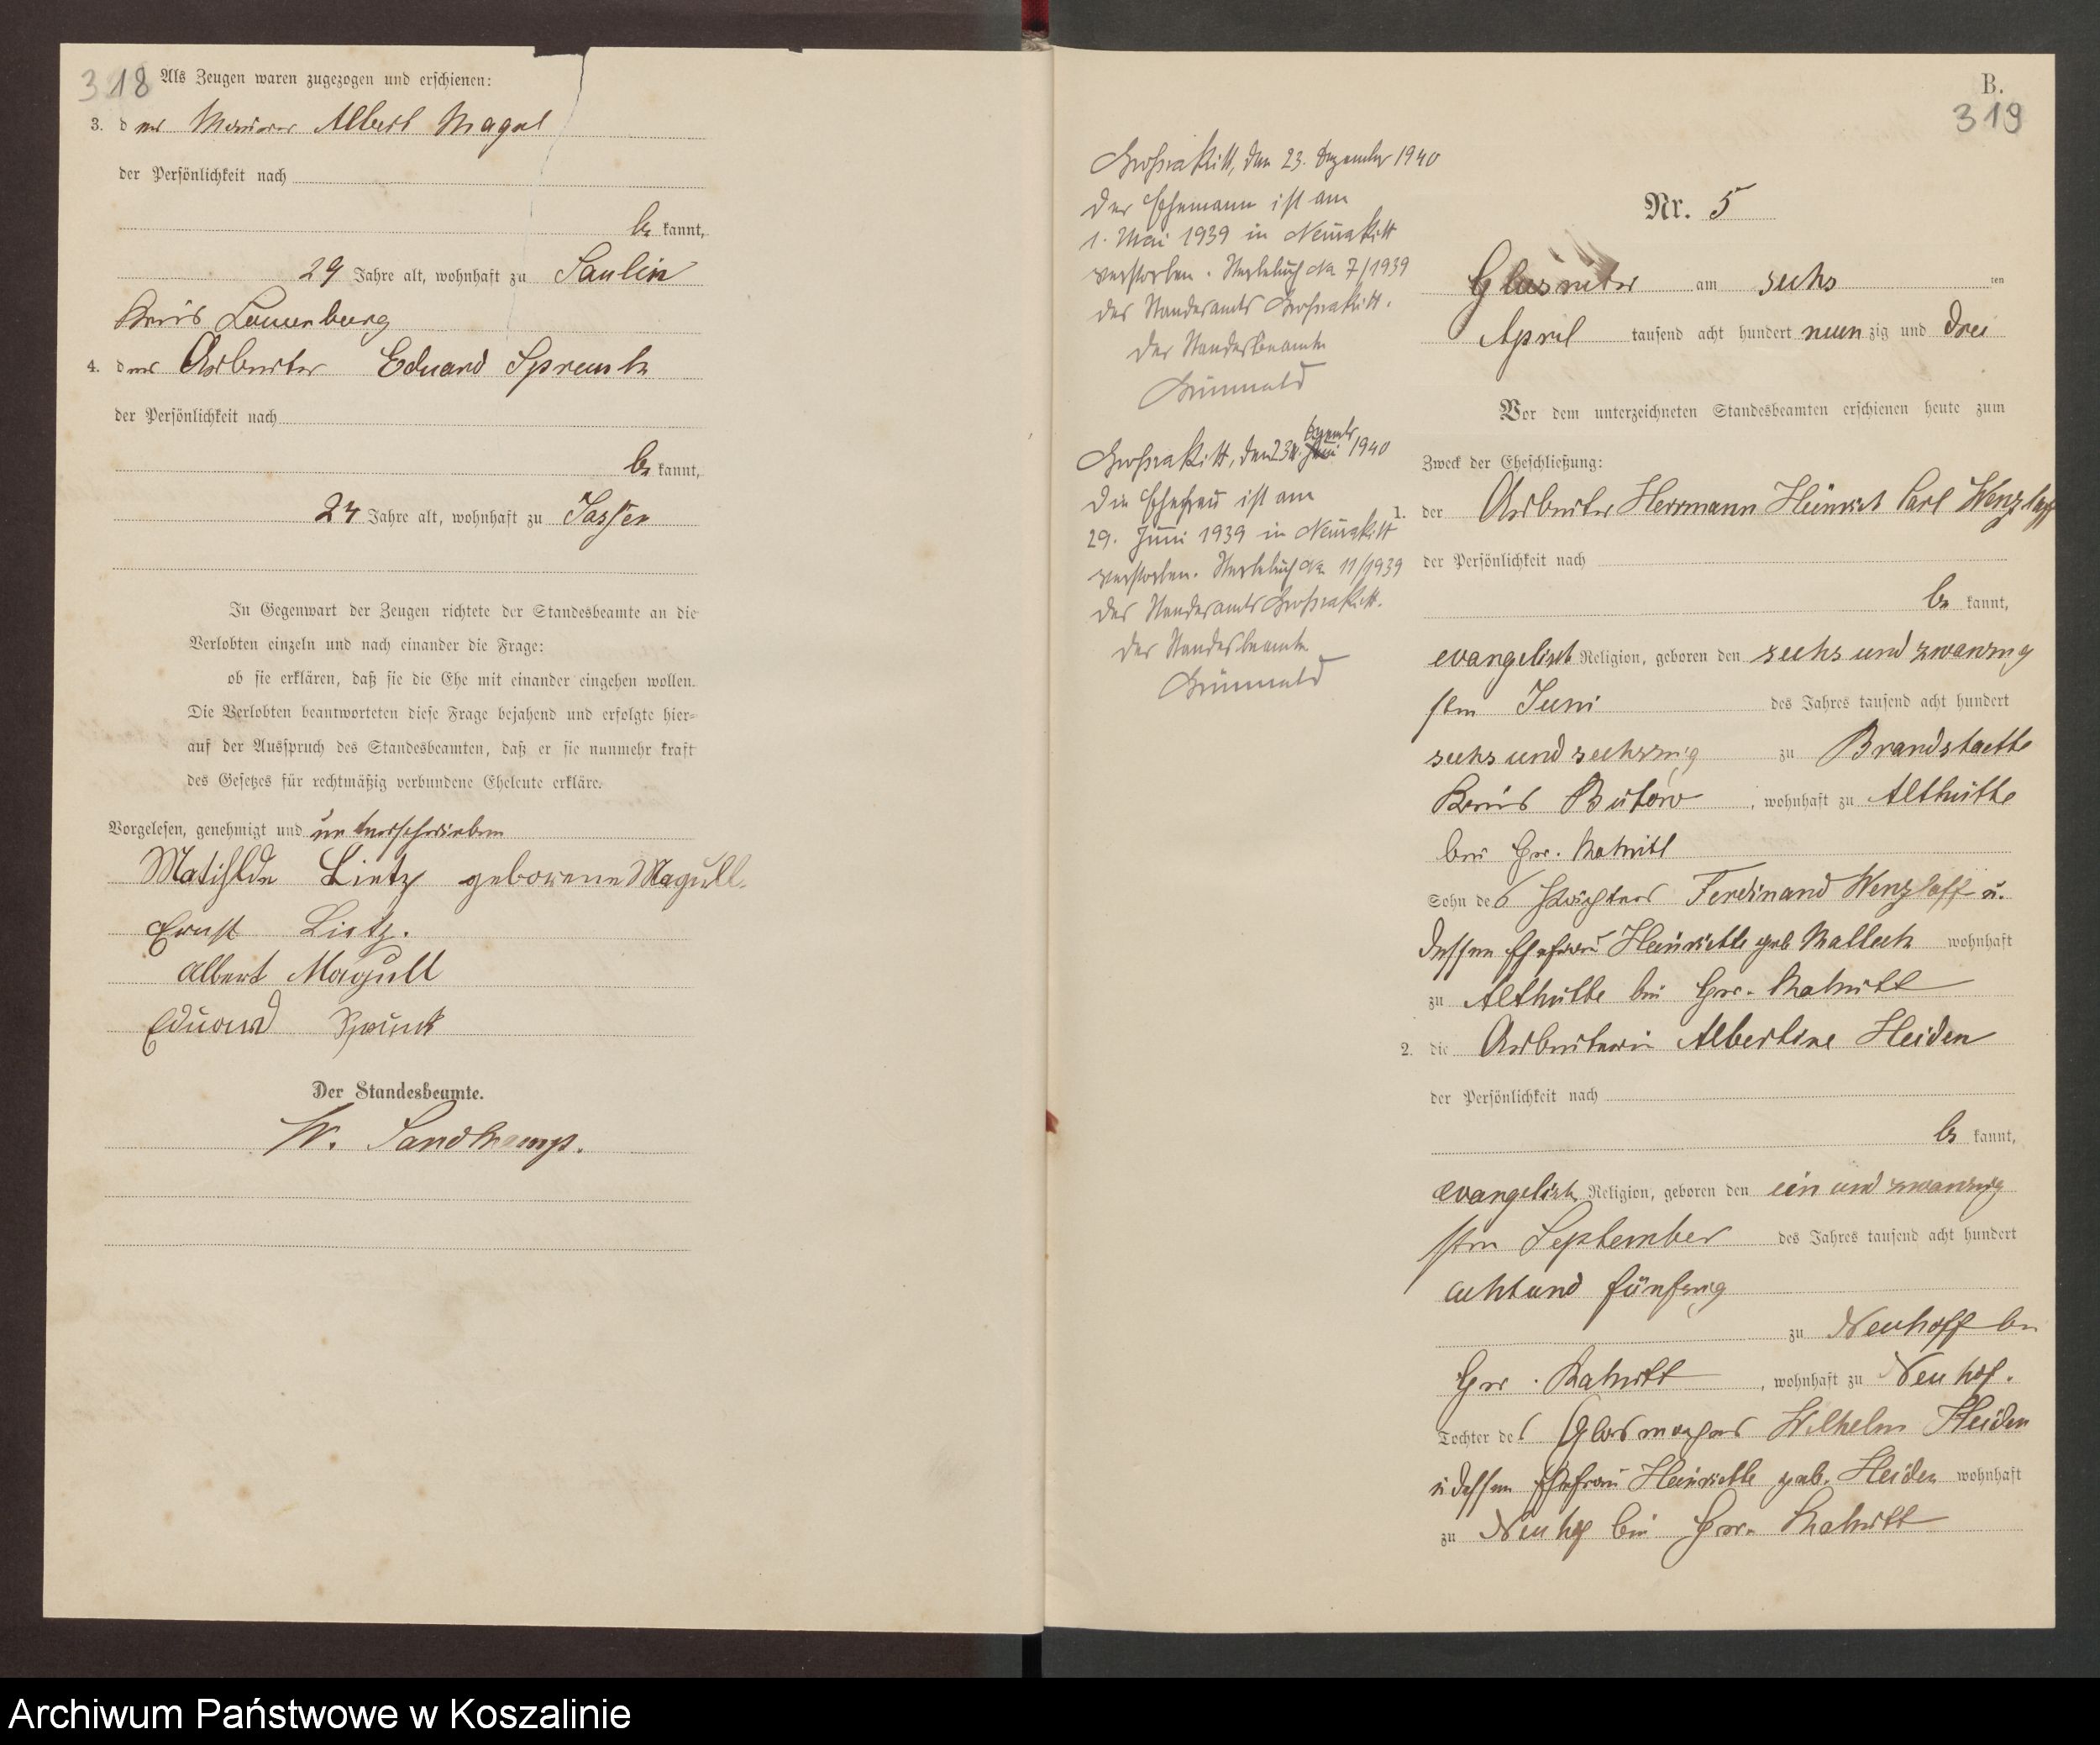 318 Als Zeugen waren zugezogen und erschienen:
3. der Maurer Albert Magul
der Persönlichkeit nach
be kannt,
29 Jahre alt, wohnhaft zu Saulin
Kreis Lauenburg
4. der Arbeiter Eduard Spreuck
der Persönlichkeit nach
be kannt,
24 Jahre alt, wohnhaft zu Sassen
In Gegenwart der Zeugen richtete der Standesbeamte an die
Verlobten einzeln und nach einander die Frage:
ob sie erklären, daß sie die Ehe mit einander eingehen wollen.
Die Verlobten beantworteten diese Frage bejahend und erfolgte hier-
auf der Ausspruch des Standesbeamten, daß er sie nunmehr kraft
des Gesetzes für rechtmäßig verbundene Eheleute erkläre.
Vorgelesen, genehmigt und unterschrieben
Mathilde Lietz geborene Magull.
Ernst Lietz.
Albert Magull
Eduard
Der Standesbeamte.
W. Sandkamp.
B.
319
Großrakitt, den 23. Dezember 1940
Der Ehemann ist am
1. Mai 1939 in Neurakitt
verstorben. Sterbebuch Nr. 7/1939
des Standesamts Großrakitt.
Der Standesbeamte
Grünwald
Großrakitt, den 23. Dezember 1940
Die Ehefrau ist am
29. Juni 1939 in Neurakitt
verstorben. Sterbebuch Nr. 11/1939
des Standesamts Großrakitt.
Der Standesbeamte
Grünwald
Nr. 5
am sechs ten
April tausend acht hundert neun zig und drei
Vor dem unterzeichneten Standesbeamten erschienen heute zum
Zweck der Eheschließung:
1. der Arbeiter Herrmann Heinrich Carl Wenzlaff
der Persönlichkeit nach
be kannt,
evangelisch Religion, geboren den sechs und zwanzig
sten Juni des Jahres tausend acht hundert
sechs und sechszig zu Brandstaette
Kreis Butow, wohnhaft zu Althütte
bei Gr. Rakitt
Sohn des Ferdinand Wenzlaff u.
dessen Ehefrau Heinriette geb. Malleck wohnhaft
zu Althütte bei Gr. Rakitt
2. die Arbeiterin Albertine Heiden
der Persönlichkeit nach
be kannt,
evangelisch Religion, geboren den ein und zwanzig
sten September des Jahres tausend acht hundert
acht und fünfzig
zu Neuhoff bei
Gr. Rakitt, wohnhaft zu Neuhof.
Tochter des Glasmachers Wilhelm Heiden
u dessen Ehefrau Heinriette geb. Heiden wohnhaft
zu Neuhof bei Gr. Rakitt
Archiwum Państwowe w Koszalinie